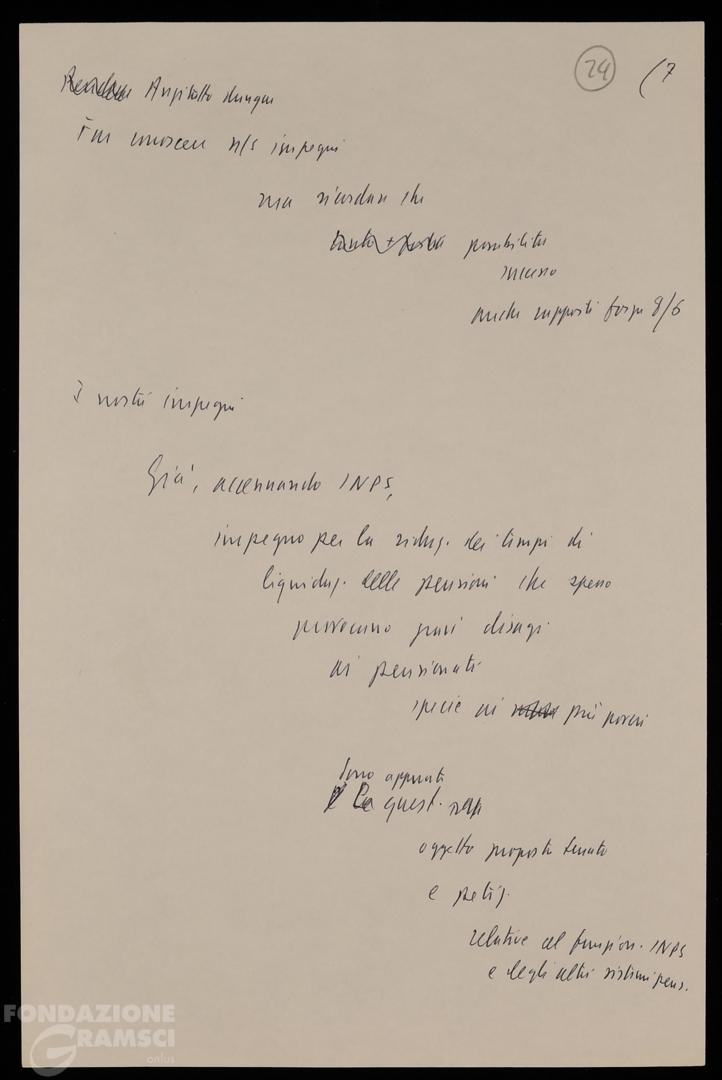 24 (7
dunque
Far conoscere n/s impegni
ma ricordare che
possibilità
successo
anche rapporti forze 8/6
I nostri impegni
Già, accennando INPS,
impegno per la riduz. dei tempi di
liquidaz. delle pensioni che spesso
provocano gravi disagi
ai pensionati
specie ai più poveri
Sono appunti
La quest.
oggetto proposta Senato
e petiz.
relative al funzion. INPS
e degli altri sistemi pens.
FONDAZIONE
GRAMSCI
onlus